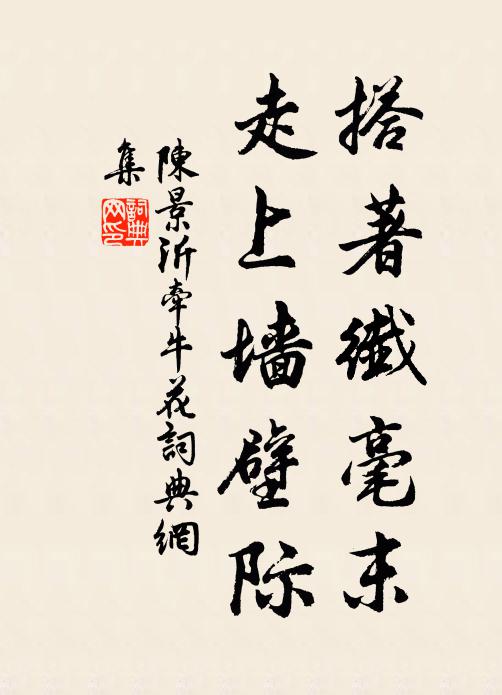 搭著纖毫末
走上墙壁际
陳景沂牽牛花詞典網
集
詞典
网印